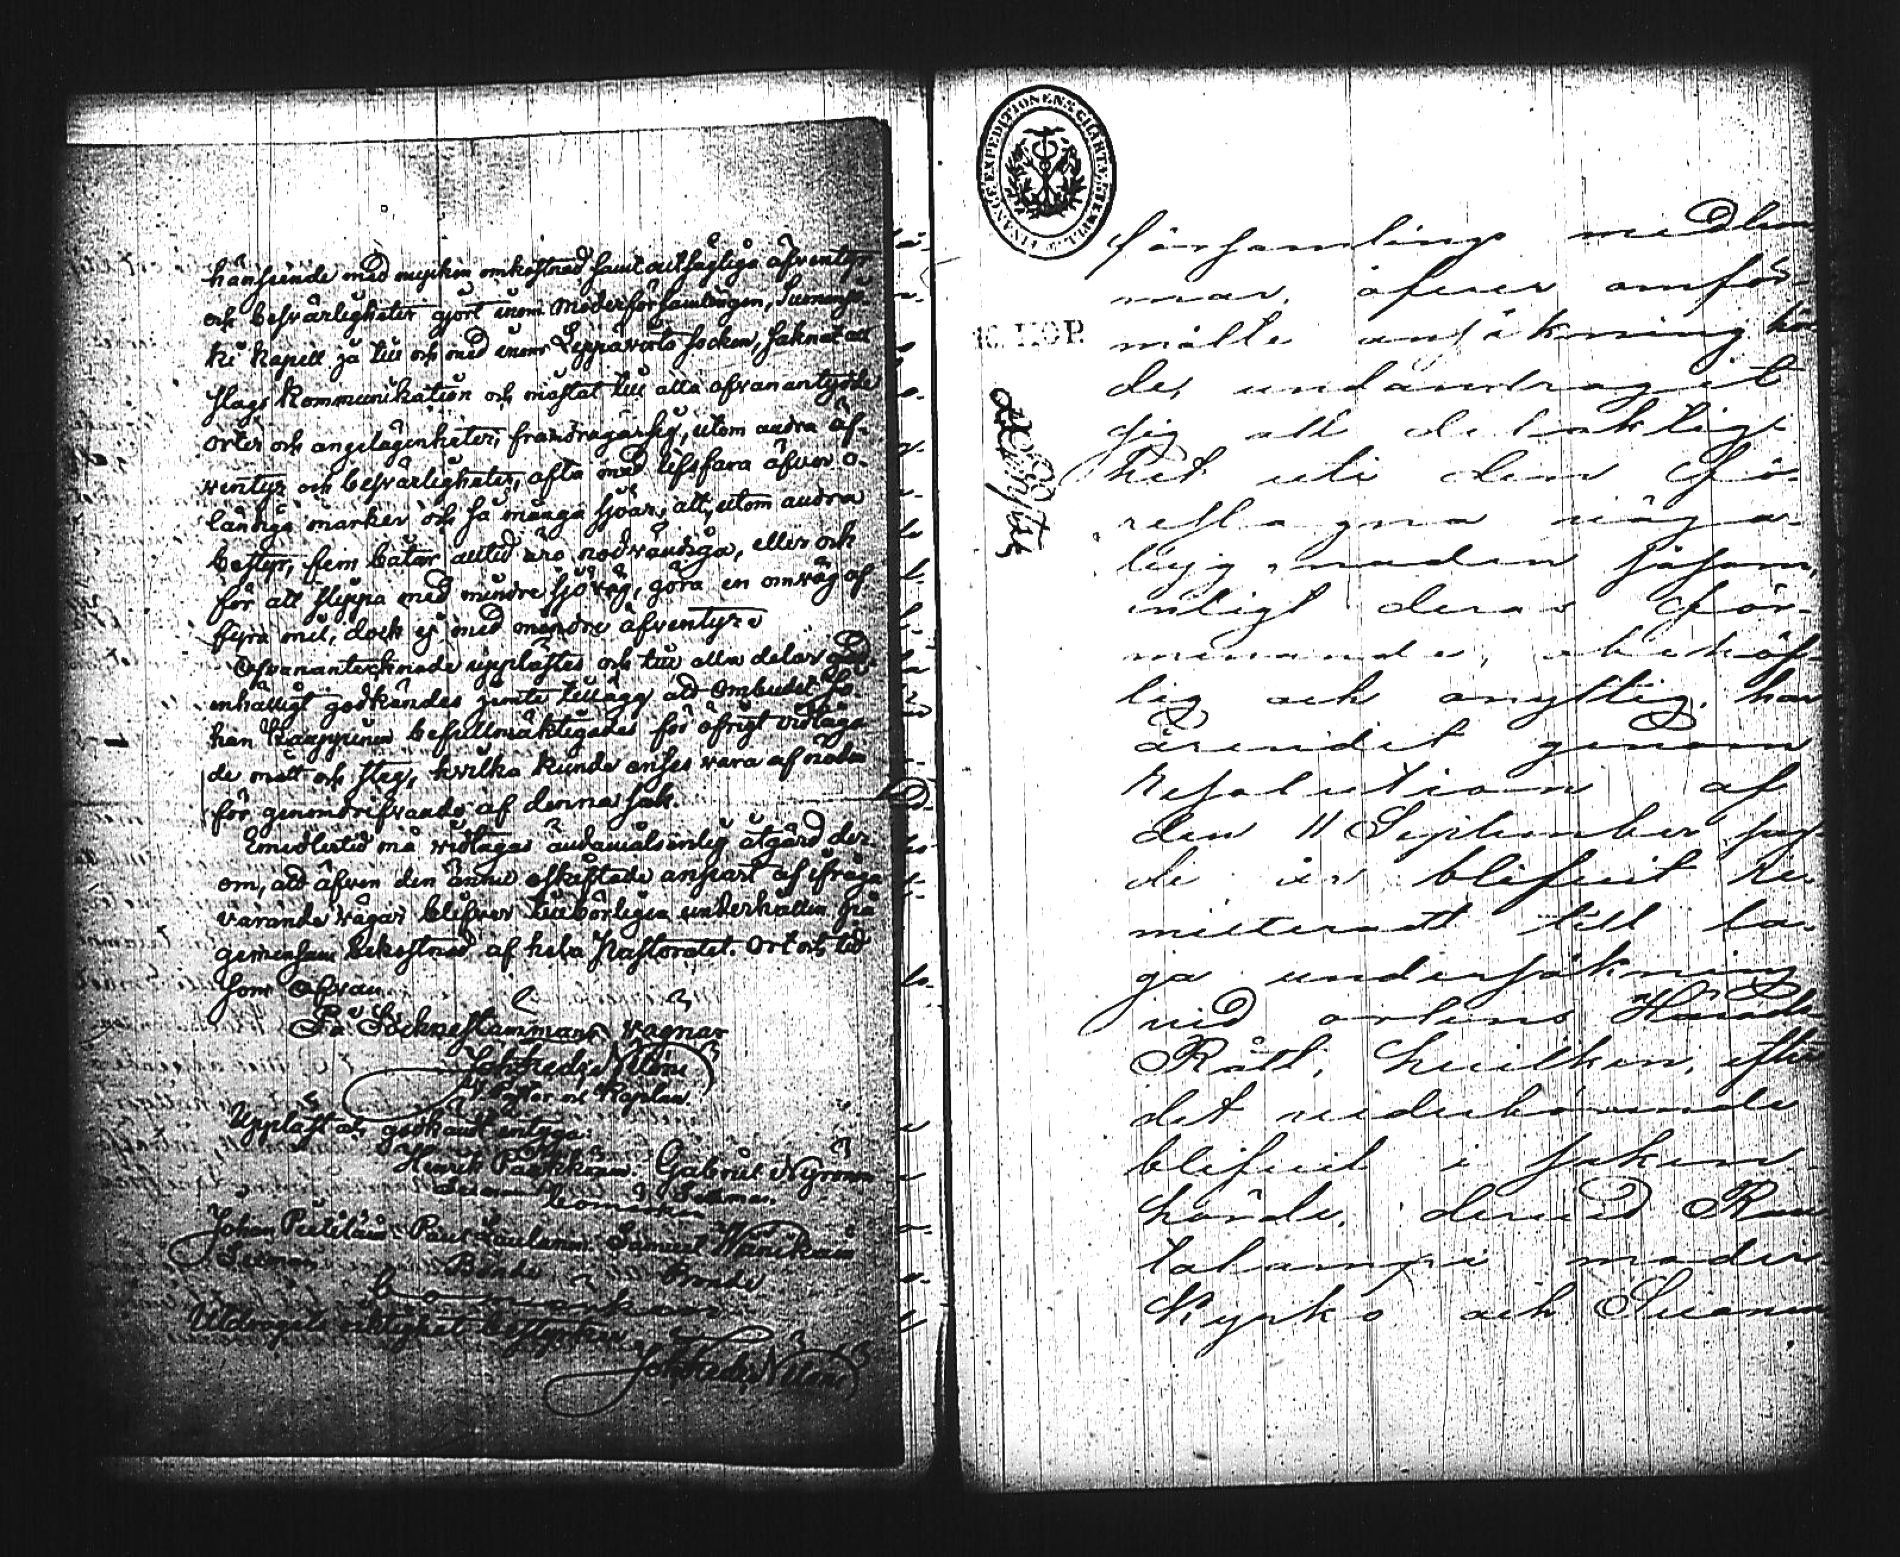 hänseende med mycken omkostnad samt outsägliga äfventyr
och besvärligheter gjort inom Moderförsamlingen, Suonenjo-
ki Kapell ja till och med inom Leppävirta Socken, saknat all
slags Kommunikation och måstat till alla ofvanantydde
orter och angelägenheter, framdraga sig, utom andra äf-
ventyr och besvärligheter, ofta med lifsfara öfver o-
ländiga marker och så många sjöar, att, utom andra
bestyr, fem båtar alltid äro nödvändiga, eller och
för att slippa med mindre sjöväg, göra en omväg af
fyra mil, dock ej med mindre äfventyr.
Ofvanantecknade upplästes och till alla delar
enhälligt godkändes jemte tillägg att Ombudet Jo-
han Kauppinen befullmäktigades för öfrigt vidtaga
de mått och steg, hvilka kunde anses vara af nöden
för genomdrifvande af denna sak.
Emedlertid må vidtagas ändamålsenlig åtgärd der-
om, att äfven den ännu oskiftade anpart af ifråga
varande vägar blifver tillbörligen underhållen på
gemensam bekostnad af hela Pastoratet. Ort och tid
som Ofvan.
På Sockenestämmans vägnar
Joh Fredr Nilene
V. Pastor och Kaplan
Uppläst och godkändt intyga:
Henrik Pärkkinen Gabriel Nyrönen
Sexman bomärken Sexman
Johan Puttilain Paul Laulainen Samuel Wänskäin
Sexman Bonde Bonde
bomärken
Utdragets riktighet bestyrker
Joh Fredr Nilene
FINANCE EXPEDITIONENS CHARTÆ STEMPEL
10. KOP.
församlings medlem-
mar, öfver omför-
mälte ansökning hör-
de, undandragit
sig all delaktig-
het uti den fö-
reslagna väga-
lägg-naden såsom,
enligt deras för-
menande, obehöf-
lig och onyttig, har
ärendet genom
Resolution af
den 11 September sist-
de år blifvit re-
mitteradt till la-
ga undersökning
vid ortens Härads-
Rätt, hvilken, efter
det vederbörande
blifvit i saken
hörde, dervid Rau-
talampi moder-
Kyrko och Suonen-